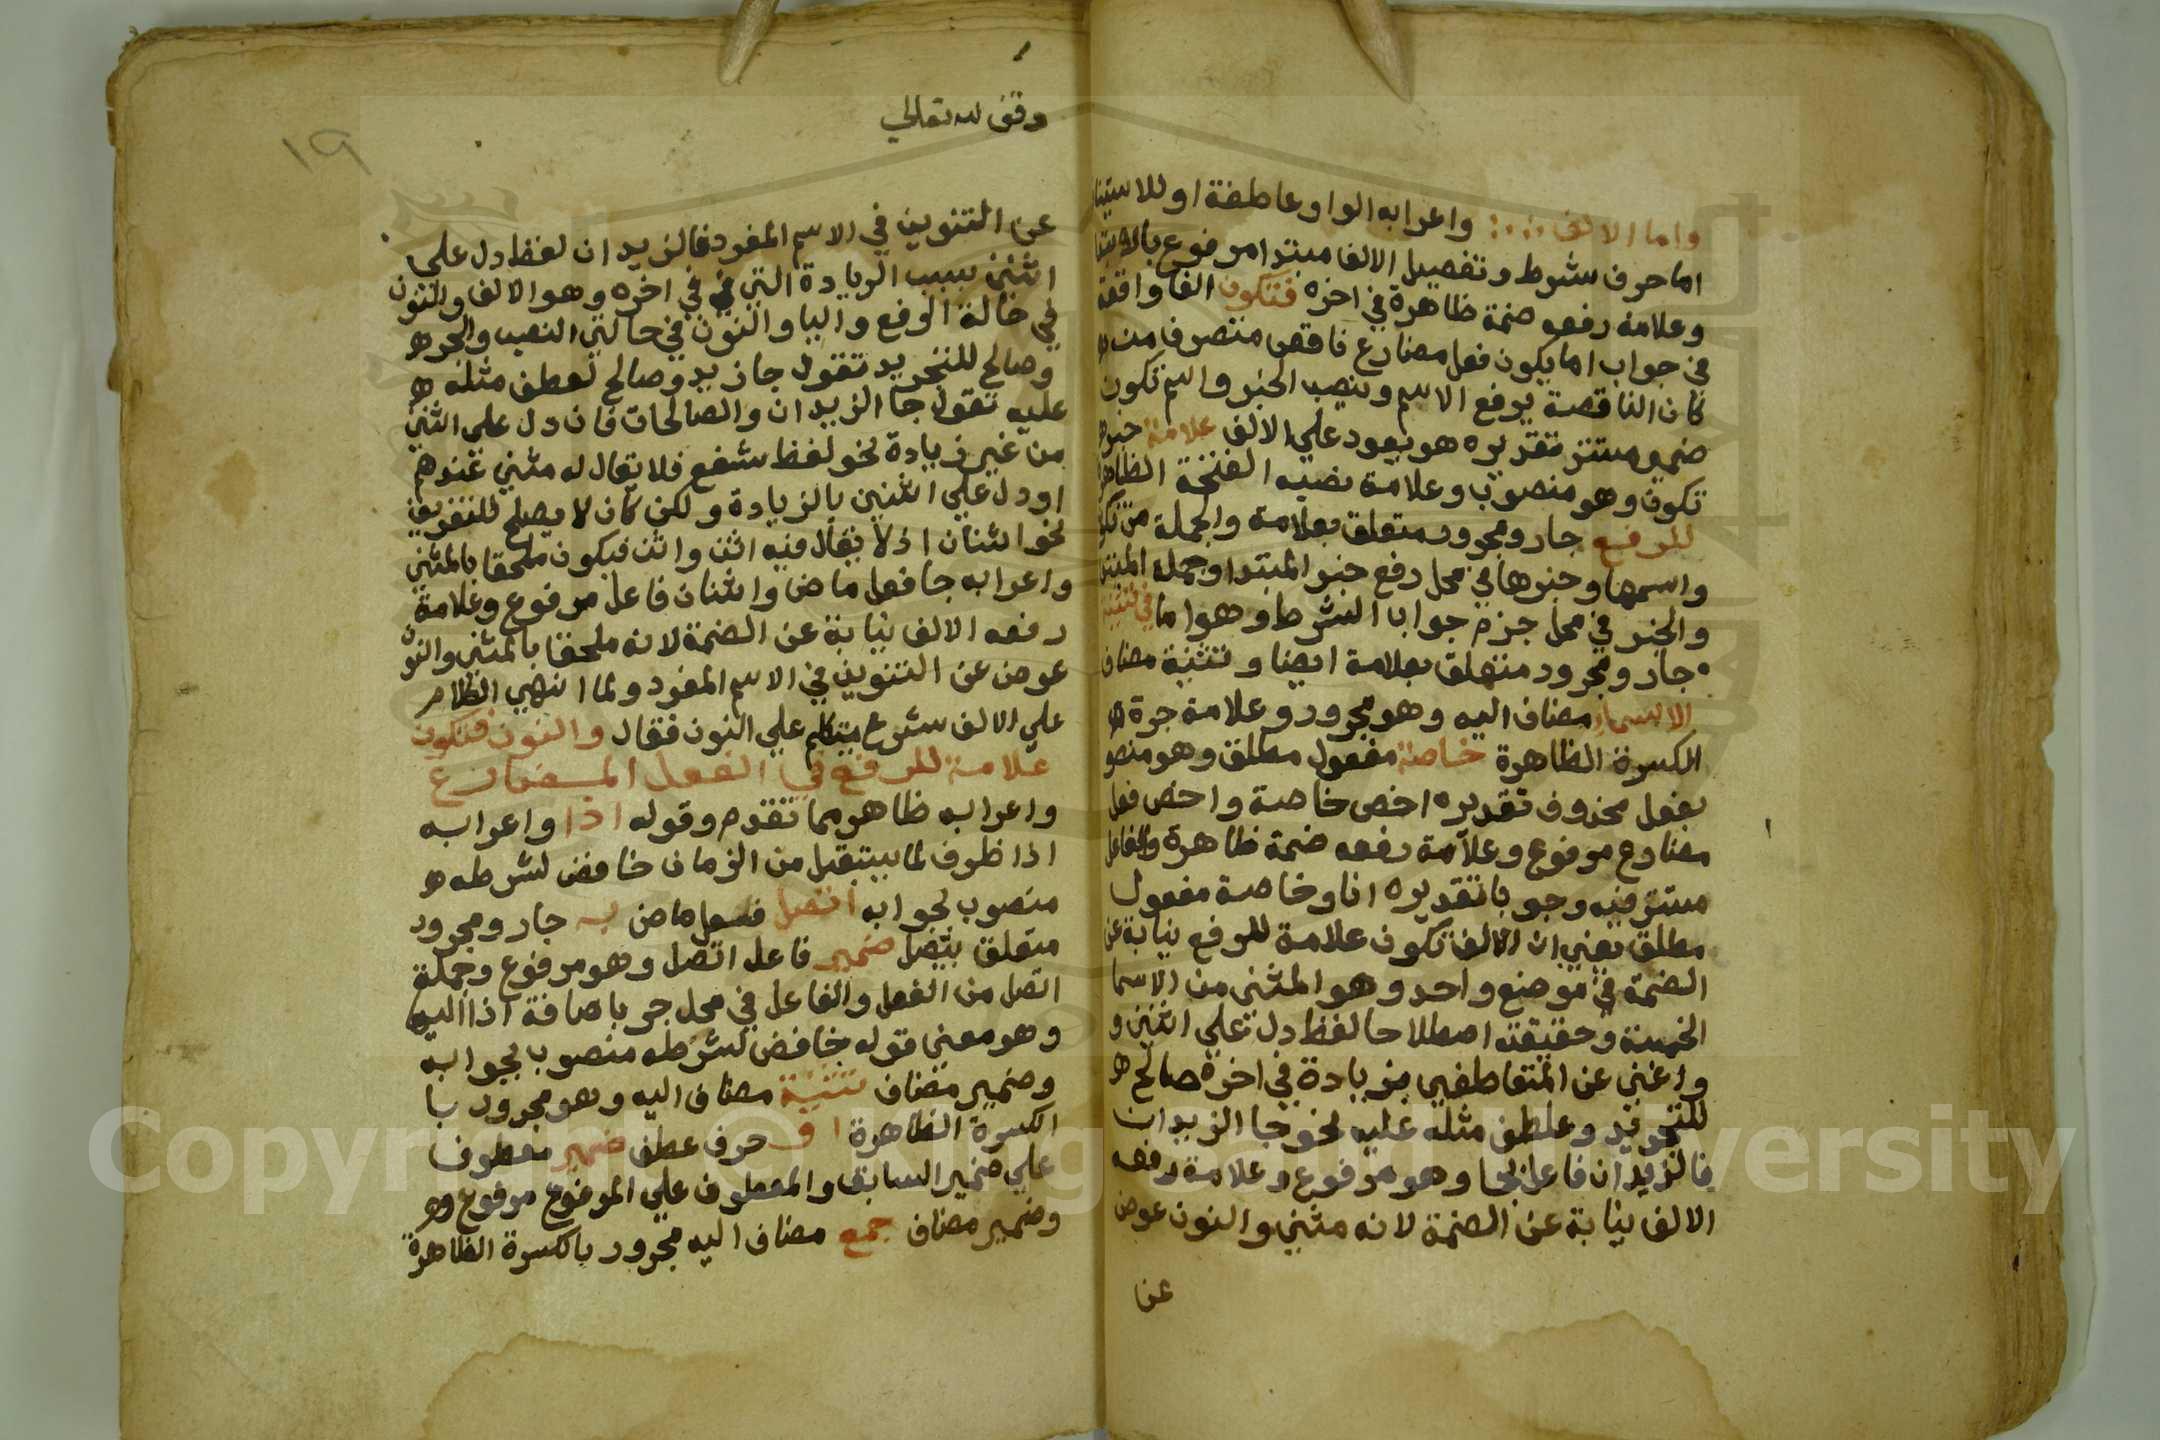 واما الالف واعرابه الواو عاطفة او للاستينا
اما حرف شرط وتفصيل الالف مبتدا مرفوع بالابتدا
وعلامة رفعه ضمة ظاهرة في اخره فتكون الفا واقعة
في جواب اما يكون فعل مضارع ناقص متصرف من
كان الناقصة يرفع الاسم وينصب الخبر واسم تكون
ضمير مستتر تقديره هو يعود علي الالف علامة خبر
تكون وهو منصوب وعلامة نصبه الفتحة الظاهرة
للرفع جار ومجرور متعلق بعلامة والجملة من تكون
واسمها وخبرها في محل رفع خبر المبتدا وجملة المبتدا
والخبر في محل جزم جواب الشرط وهو اما في تثنية
جار ومجرور متعلق بعلامة ايضا وتثنية مضاف
الاسماء مضاف اليه وهو مجرور وعلامة جره
الكسرة الظاهرة خاصة مفعول مطلق وهو منصو
بفعل محذوف تقديره اخص خاصة واخص فعل
مضارع مرفوع وعلامة رفعه ضمة ظاهرة والفاعل
مستتر فيه وجوبا تقديره انا وخاصة مفعول
مطلق يعني ان الالف تكون علامة للرفع نيابة عن
الضمة في موضع واحد وهو المثني من الاسما
الخمسة وحقيقته اصطلاحا لفظ دل علي اثنين و
واغني عن المتعاطفين بزيادة في اخره صالح
للتجريد وعطف مثله عليه نحو جا الزيدان
فالزيدان فاعل بجا وهو مرفوع وعلامة رفعه
الالف نيابة عن الضمة لانه مثني والنون عوض
عن
وقف لله تعالي
١٩
عن التنوين في الاسم المفرد فالزيدان لفظ دل علي
اثنين بسبب الزيادة التي في اخره وهو الالف والنون
في حالة الرفع واليا والنون في حالتي النصب والجر
وصالح للتجريد تقول جا زيد وصالح لعطف مثله
عليه تقول جا الزيدان والصالحات فان دل علي اثنين
من غير زيادة نحو لفظ شفع فلا يقال له مثني
او دل علي اثنين بالزيادة ولكن كان لا يصلح للتفريق
نحو اثنان اذ لا يقال فيه اثن واثن فيكون ملحقا بالمثني
واعرابه جا فعل ماض واثنان فاعل مرفوع وعلامة
رفعه الالف نيابة عن الضمة لانه ملحقا بالمثني والنون
عوض عن التنوين في الاسم المفرد ولما انهي الكلام
علي الالف شرع يتكلم علي النون فقال والنون فتكون
علامة للرفع في الفعل المضارع
واعرابه ظاهر مما تقدم وقوله اذا واعرابه
اذا ظرف لما يستقبل من الزمان خافض لشرطه
منصوب لجوابه اتصل فعل ماض به جار ومجرور
متعلق بتصل ضمير فاعل اتصل وهو مرفوع وجملة
اتصل من الفعل والفاعل في محل جر باضافة اذا اليه
وهو معني قوله خافض لشرطه منصوب بجوابه
وضمير مضاف تثنية مضاف اليه وهو مجرور با
الكسرة الظاهرة او حرف عطف ضمير معطوف
علي ضمير السابق والمعطوف علي المرفوع مرفوع
وضمير مضاف جمع مضاف اليه مجرور بالكسرة الظاهرة
Copyright © King Saud University